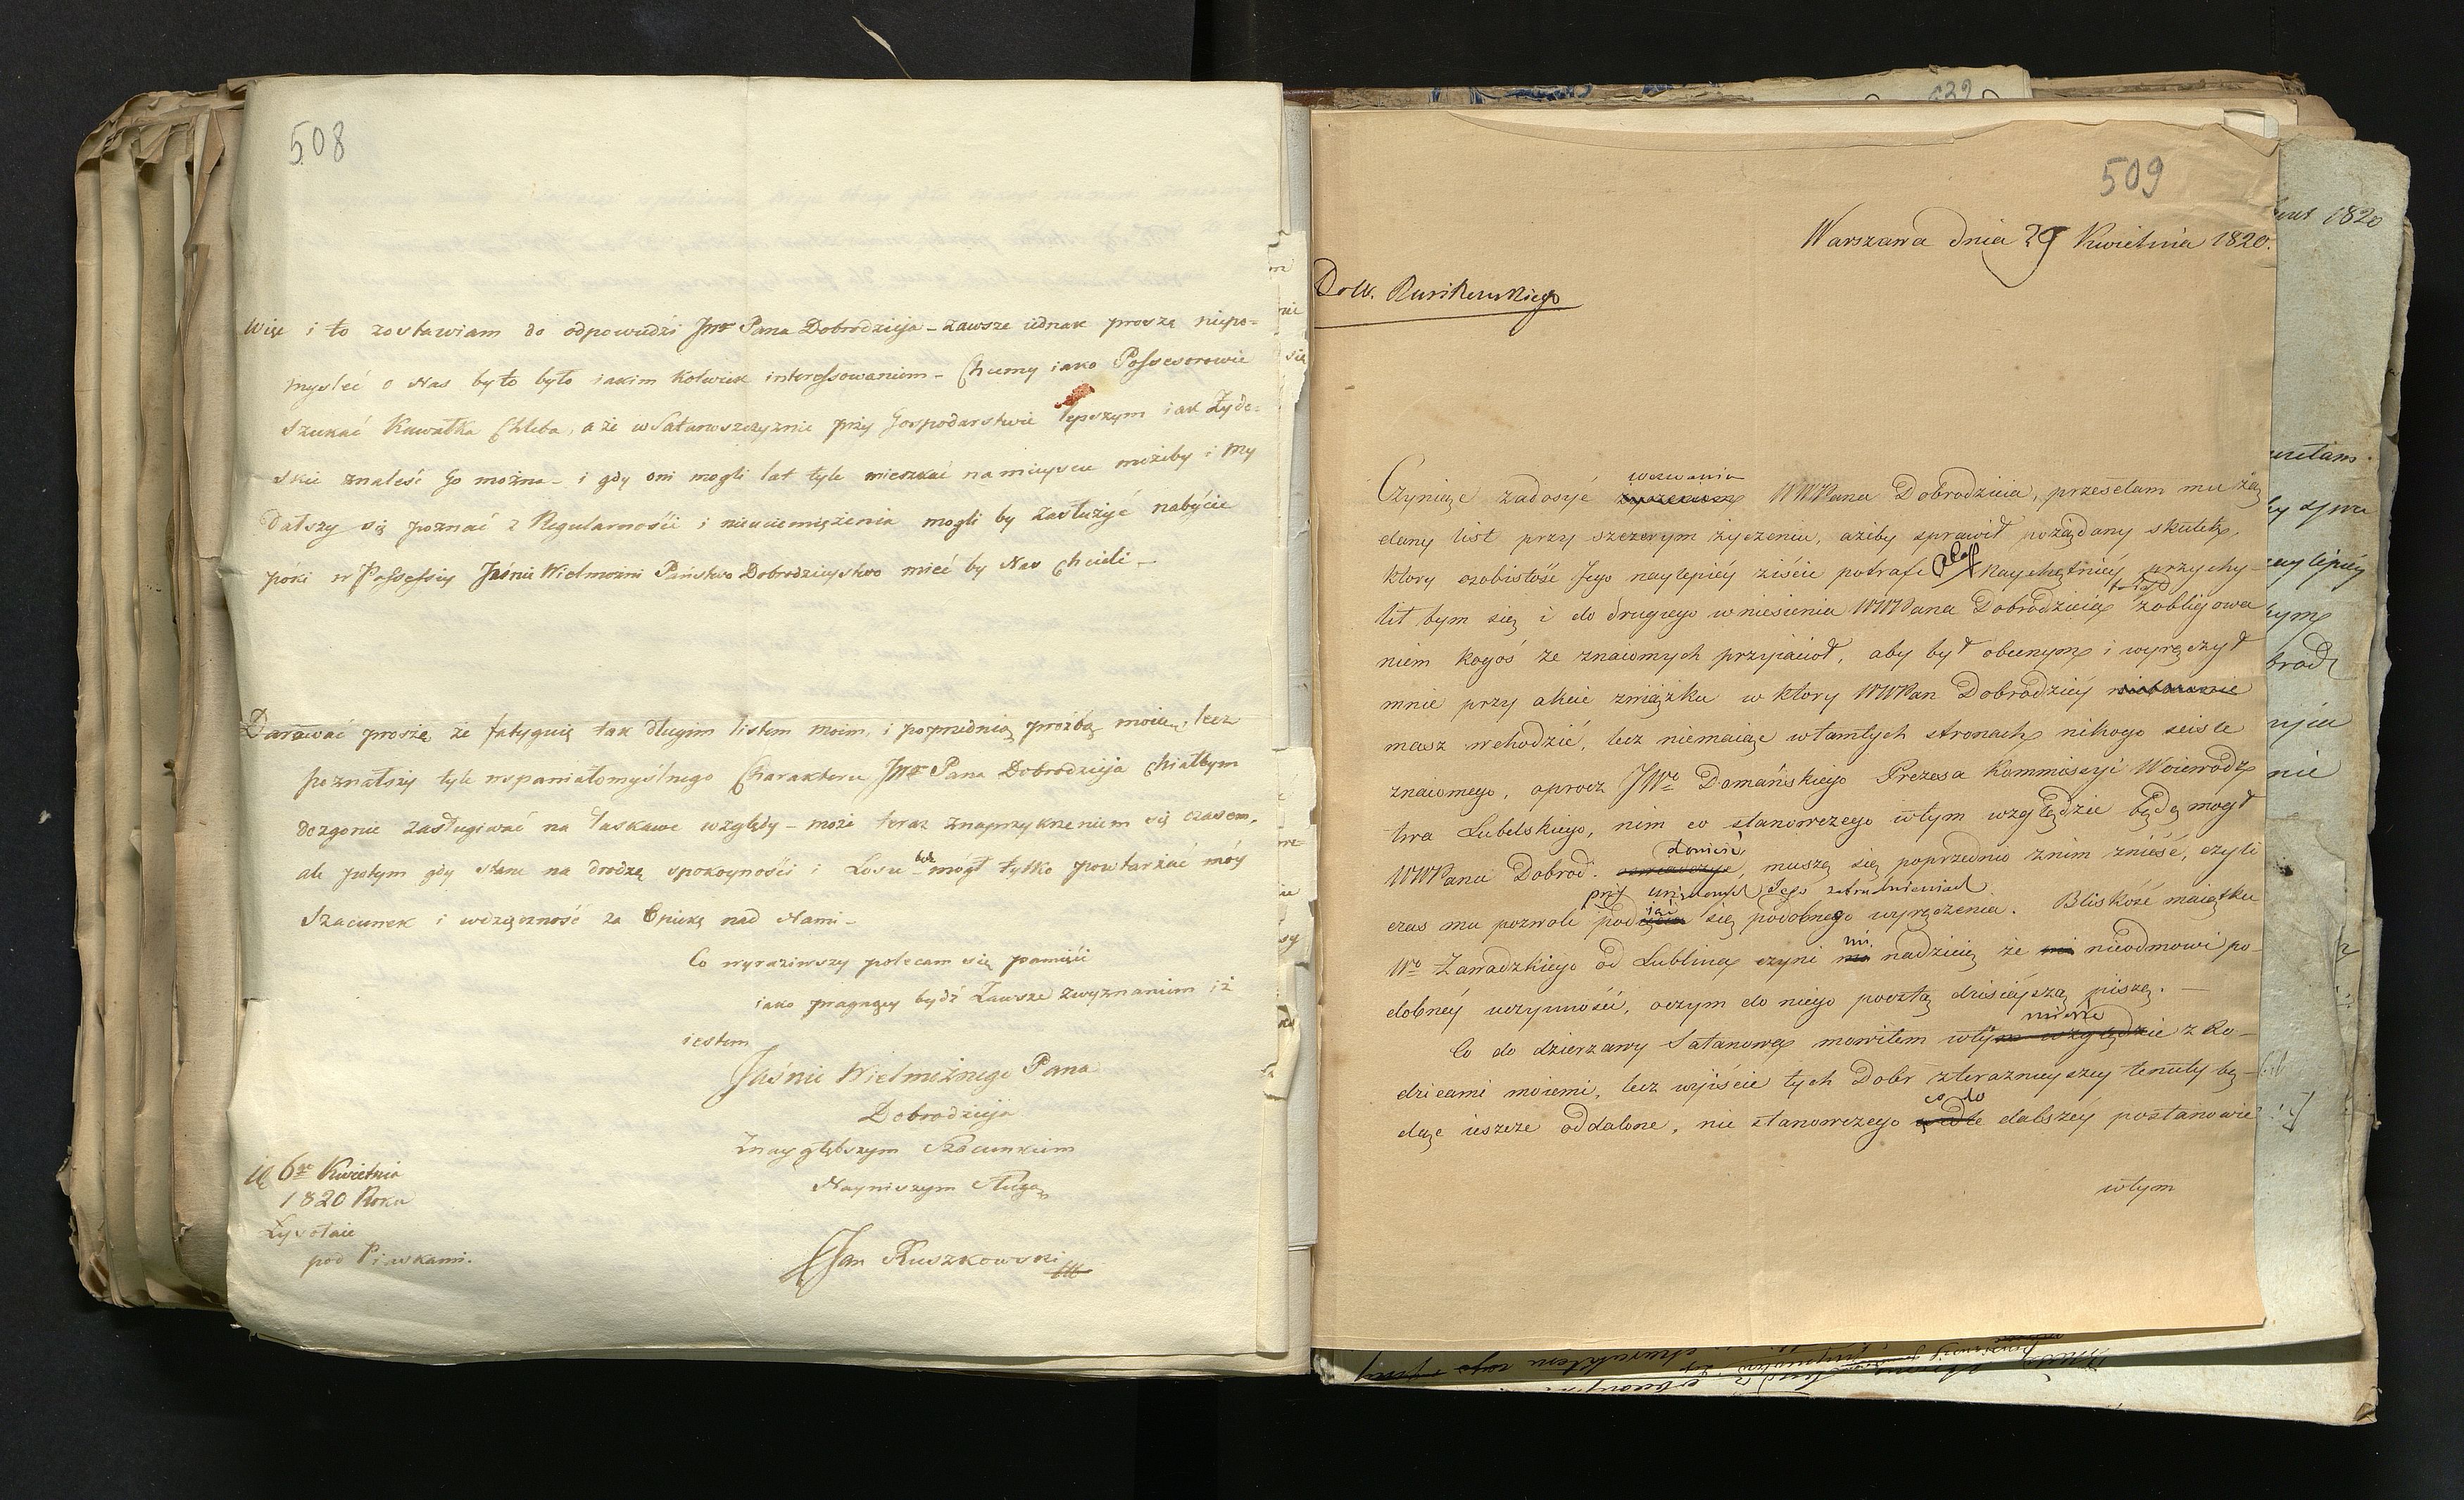 508
Więc i to zostawiam do odpowiedzi JWo Pana Dobrodzieja – zawsze iednak proszę niepo=
mysleć o Nas było było iakim kolwiek interessowaniem – Chcemy iako Possesorowie
Szukać Kawałka Chleba, a że w Satanowszczyznie przy Gospodarstwie lepszym iak Żydo=
skie znaleść go można – i gdy oni mogli lat tyle mieszkać na mieyscu możeby i My
Dałszy się poznać z Regularności i nieuciemiężenia mogli by zasłużyć nabycie
póki w Possessiy Jaśnie Wielmożni Państwo Dobrodzieystwo mieć by Nas Chcieli –
Darawać proszę że fatyguię tak długim listem moim, i poprzednią prozbą moią, lecz
poznałszy tyle wspaniałomyślnego Charakteru JWo Pana Dobrodzieja Chiałbym
dozgonie zasługiwać na łaskawe względy – może teraz znaprzykrzeniem się czasem,
ale potym gdy stanę na drodze spokoyności i Losu – będę mógł tylko powtarzać móy
Szacunek i wdzięczność za Opiekę nad Nami –
Co wyraziwszy polecam się pamięci
iako pragnący bydź Zawsze zwyznaniem iż
iestem
Jaśnie Wielmożnego Pana
Dobrodzieja
Znaygłębszym Szacunkiem
Nayniższym Sługą
Jan Ruszkowski
6go Kwietnia
1820 Roku
Łysołaie
pod Piaskami.
509
Warszawa dnia 29 Kwietnia 1820.
Do W. Ruszkowskiego
wezwania
Czyniąc zadosyć życzeniom WWPana Dobrodzieia, przesełam mu żą
dany list przy szczerym życzeniu, ażeby sprawił pożądany skutek,
ktory osobistość Jego naylepiéy ziście potrafi Naychętniéy przychy-
lił bym się i do drugiego wniesienia WWPana Dobrodzieia zobligowa
niem kogoś ze znaiomych przyiacioł, aby był obecnym i wyręczył
mnie przy akcie związku w ktory WWPan Dobrodziéy niebawnie
masz wchodzić, lecz niemaiąc wtamtych stronach nikogo scisle
znaiomego, oprocz JWo Domańskiego Prezesa Kommissyi Woiewodz
twa Lubelskiego, nim co stanowczego wtym względzie będę mogł
donieść
WWPanu Dobrod. oswiadczyć, muszę się poprzednio znim znieść, czyli
przy urzędowych Jego zatrudnieniach
czas mu pozwoli podiąć się podobnego wyręczenia. Bliskość maiątku
Wo Zawadzkiego od Lublina czyni mi nadzieię że mi nieodmowi po-
dobnéy uczynności, oczym do niego pocztą dzisiéyszą piszę. –
mierze
Co do dzierzawy Satanowa mowiłem wtym względzie z Ro-
dzicami moiemi, lecz wyiście tych Dobr zteraznieyszey tenuty bę-
co do
dąc ieszcze oddalone, nic stanowczego dalszéy postanowie
wtym
1820